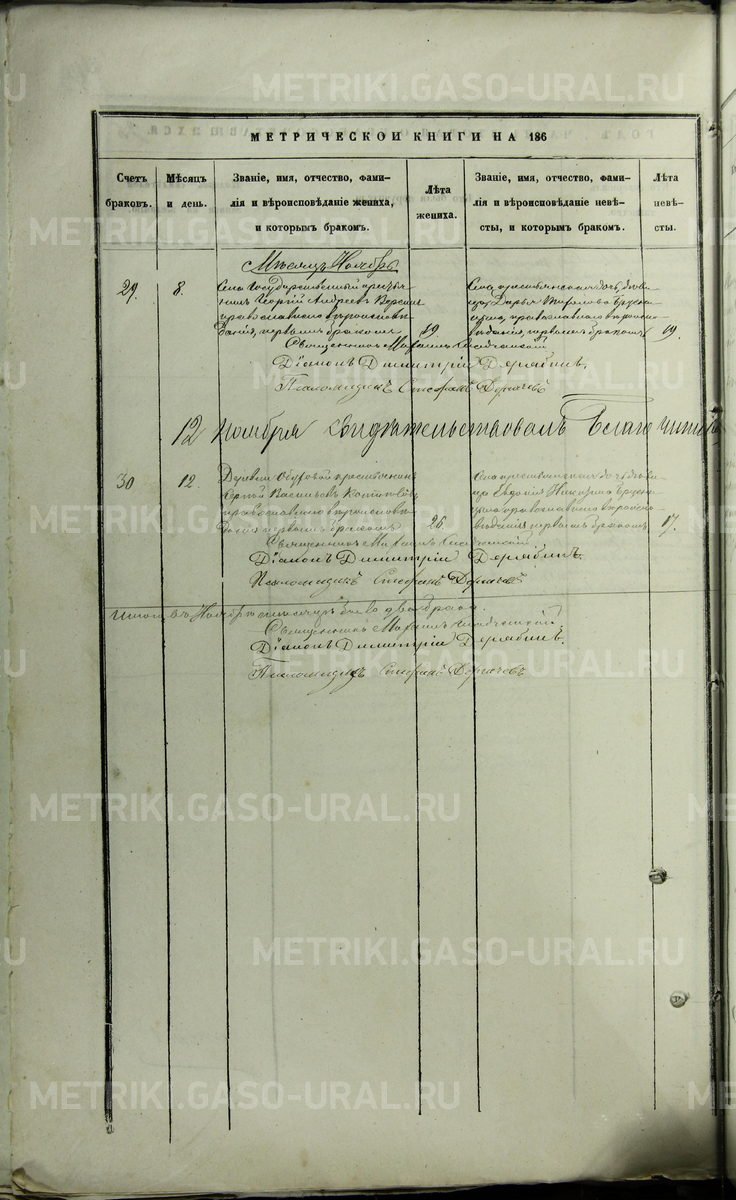 МЕТРИЧЕСКОЙ КНИГИ НА 186
Счетъ браковъ.
Мѣсяцъ и день.
Званіе, имя, отчество, фами-
лія и вѣроисповѣданіе жениха,
и которымъ бракомъ.
Лѣта жениха.
Званіе, имя, отчество, фами-
лія и вѣроисповѣданіе невѣ-
сты, и которымъ бракомъ.
Лѣта невѣ-
сты.
Мѣсяцъ Ноябрь
29. 8.
Села Государственный крестья-
нинъ Георгій Андреевъ
православнаго вѣроисповѣ-
данія, первымъ бракомъ
19.
Села крестьянская дочь, дѣви-
ца Дарья
православнаго вѣроиспо-
вѣданія, первымъ бракомъ
19.
Священникъ Михаилъ
Діаконъ Димитрій Дерябинъ.
Псаломщикъ Стефанъ
12 Ноября Свидѣтельствовалъ Благочинный
30 12.
Деревни крестьянинъ
Сергій Васильевъ
православнаго вѣроисповѣ-
данія первымъ бракомъ
26.
Села крестьянская дочь дѣви-
ца Евдокія
православнаго вѣроиспо-
вѣданія первымъ бракомъ.
17.
Священникъ Михаилъ
Діаконъ Димитрій Дерябинъ.
Псаломщикъ Стефанъ
Итого въ Ноябрѣ мѣсяцѣ было два брака.
Священникъ Михаилъ
Діаконъ Димитрій Дерябинъ.
Псаломщикъ Стефанъ
METRIKI.GASO-URAL.RU